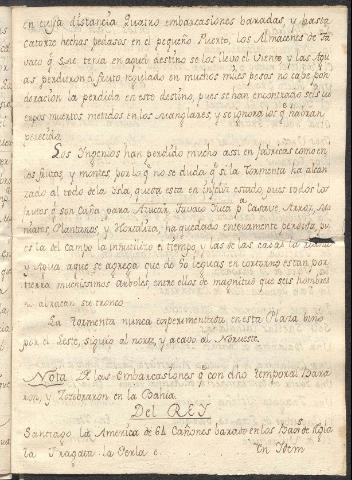 en cuya distancia quatro embarcasiones baradas, y hasta
catorze hechas pedasos en el pequeño Puerto, los Almazenes de Ta
vaco q̃ S.M. tenia en aquel destino se los llevo el Viento y las Agu
as perdieron el fruto regulado en muchos miles pesos no cabe pon
deracion la perdida en este destino, pues se han encontrado seis cu
erpos muertos metidos en los Manglares y se ignora los q̃ habran
perecido.
Los Ingenios han perdido mucho assi en fabricas como en
los frutos, y montes, por lo q̃ no se duda q̃ si la Tormenta ha alcan
zado al todo de la Isla, queda esta en infeliz estado, pues todos los
frutos q̃ son Caña para Azucar, Tavaco Yuca p.a Casave, Arroz, Me
niatos, Plantanos, y Hortaliza, ha quedado enteramente perdido, pu
es la del campo la inutilizo el tiempo, y las de las casas la
y Agua aque se agrega que de 50 leguas en contorno estan por
tierra muchissimos arboles, entre ellos de magnitud que seis hombres
no abrazan su tronco.
La tormenta nunca experimentada en esta Plaza vino
por el Leste, siguio al norte, y acavo al Norueste.
Nota D. las Embarcasiones q̃ con dho temporal Bara
ron, y Zozobraron en la Bahia.
Del REY
Santiago la America de 64 Cañones barado en los
la Fragata la Perla e en Idem